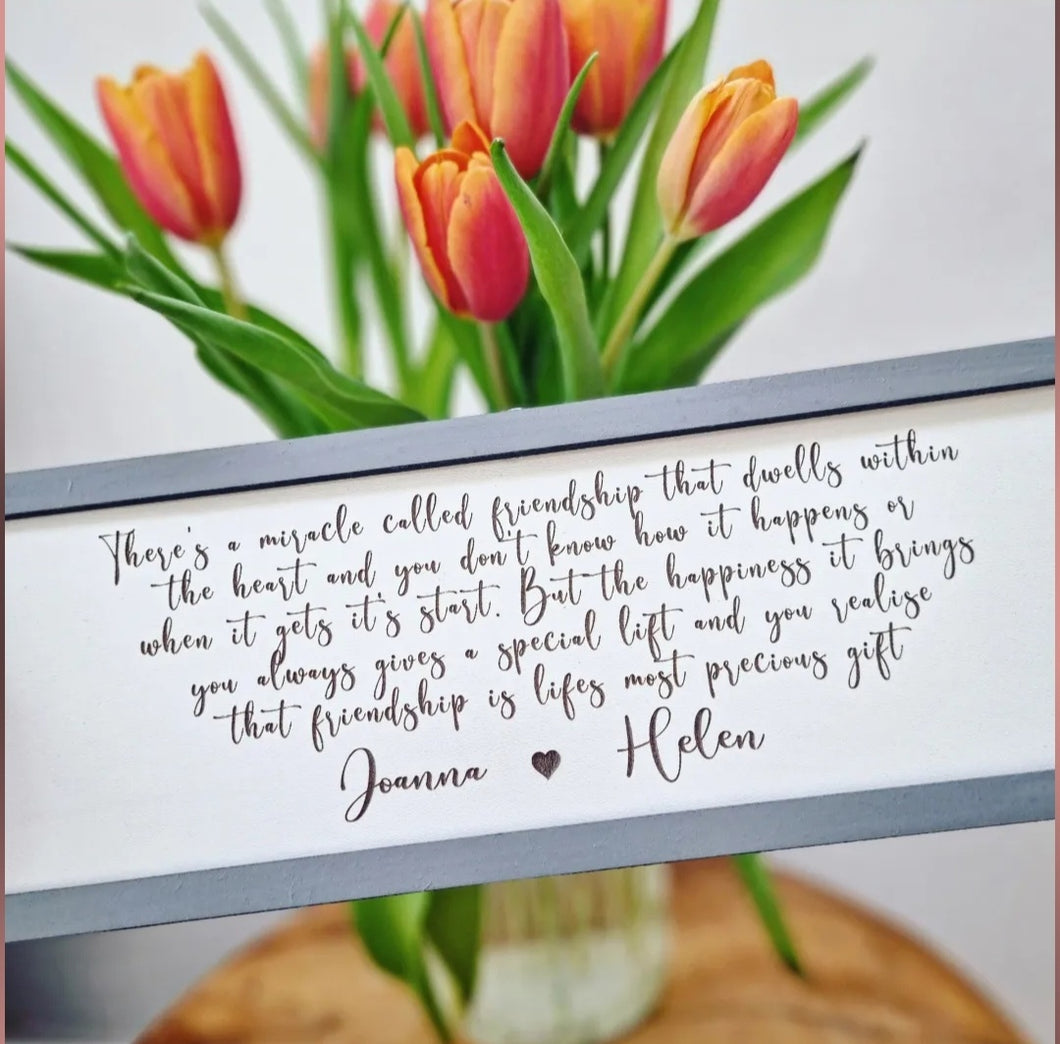 There's a miracle called friendship that dwells within
the heart and you don't know how it happens or
when it gets it's start. But the happiness it brings
you always gives a special lift and you realise
that friendship is lifes most precious gift
Joanna ♥ Helen